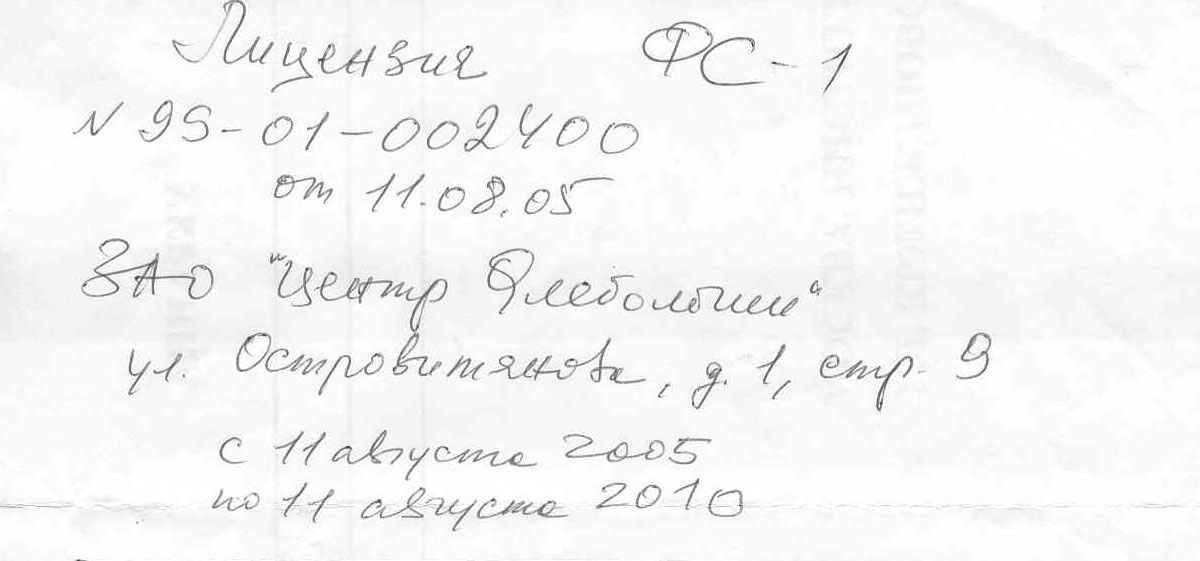 Лицензия ФС-1
N 99-01-002400
от 11.08.05
ЗАО "Центр Флебологии"
ул. Островитянова, д. 1, стр. 9
с 11 августа 2005
по 11 августа 2010